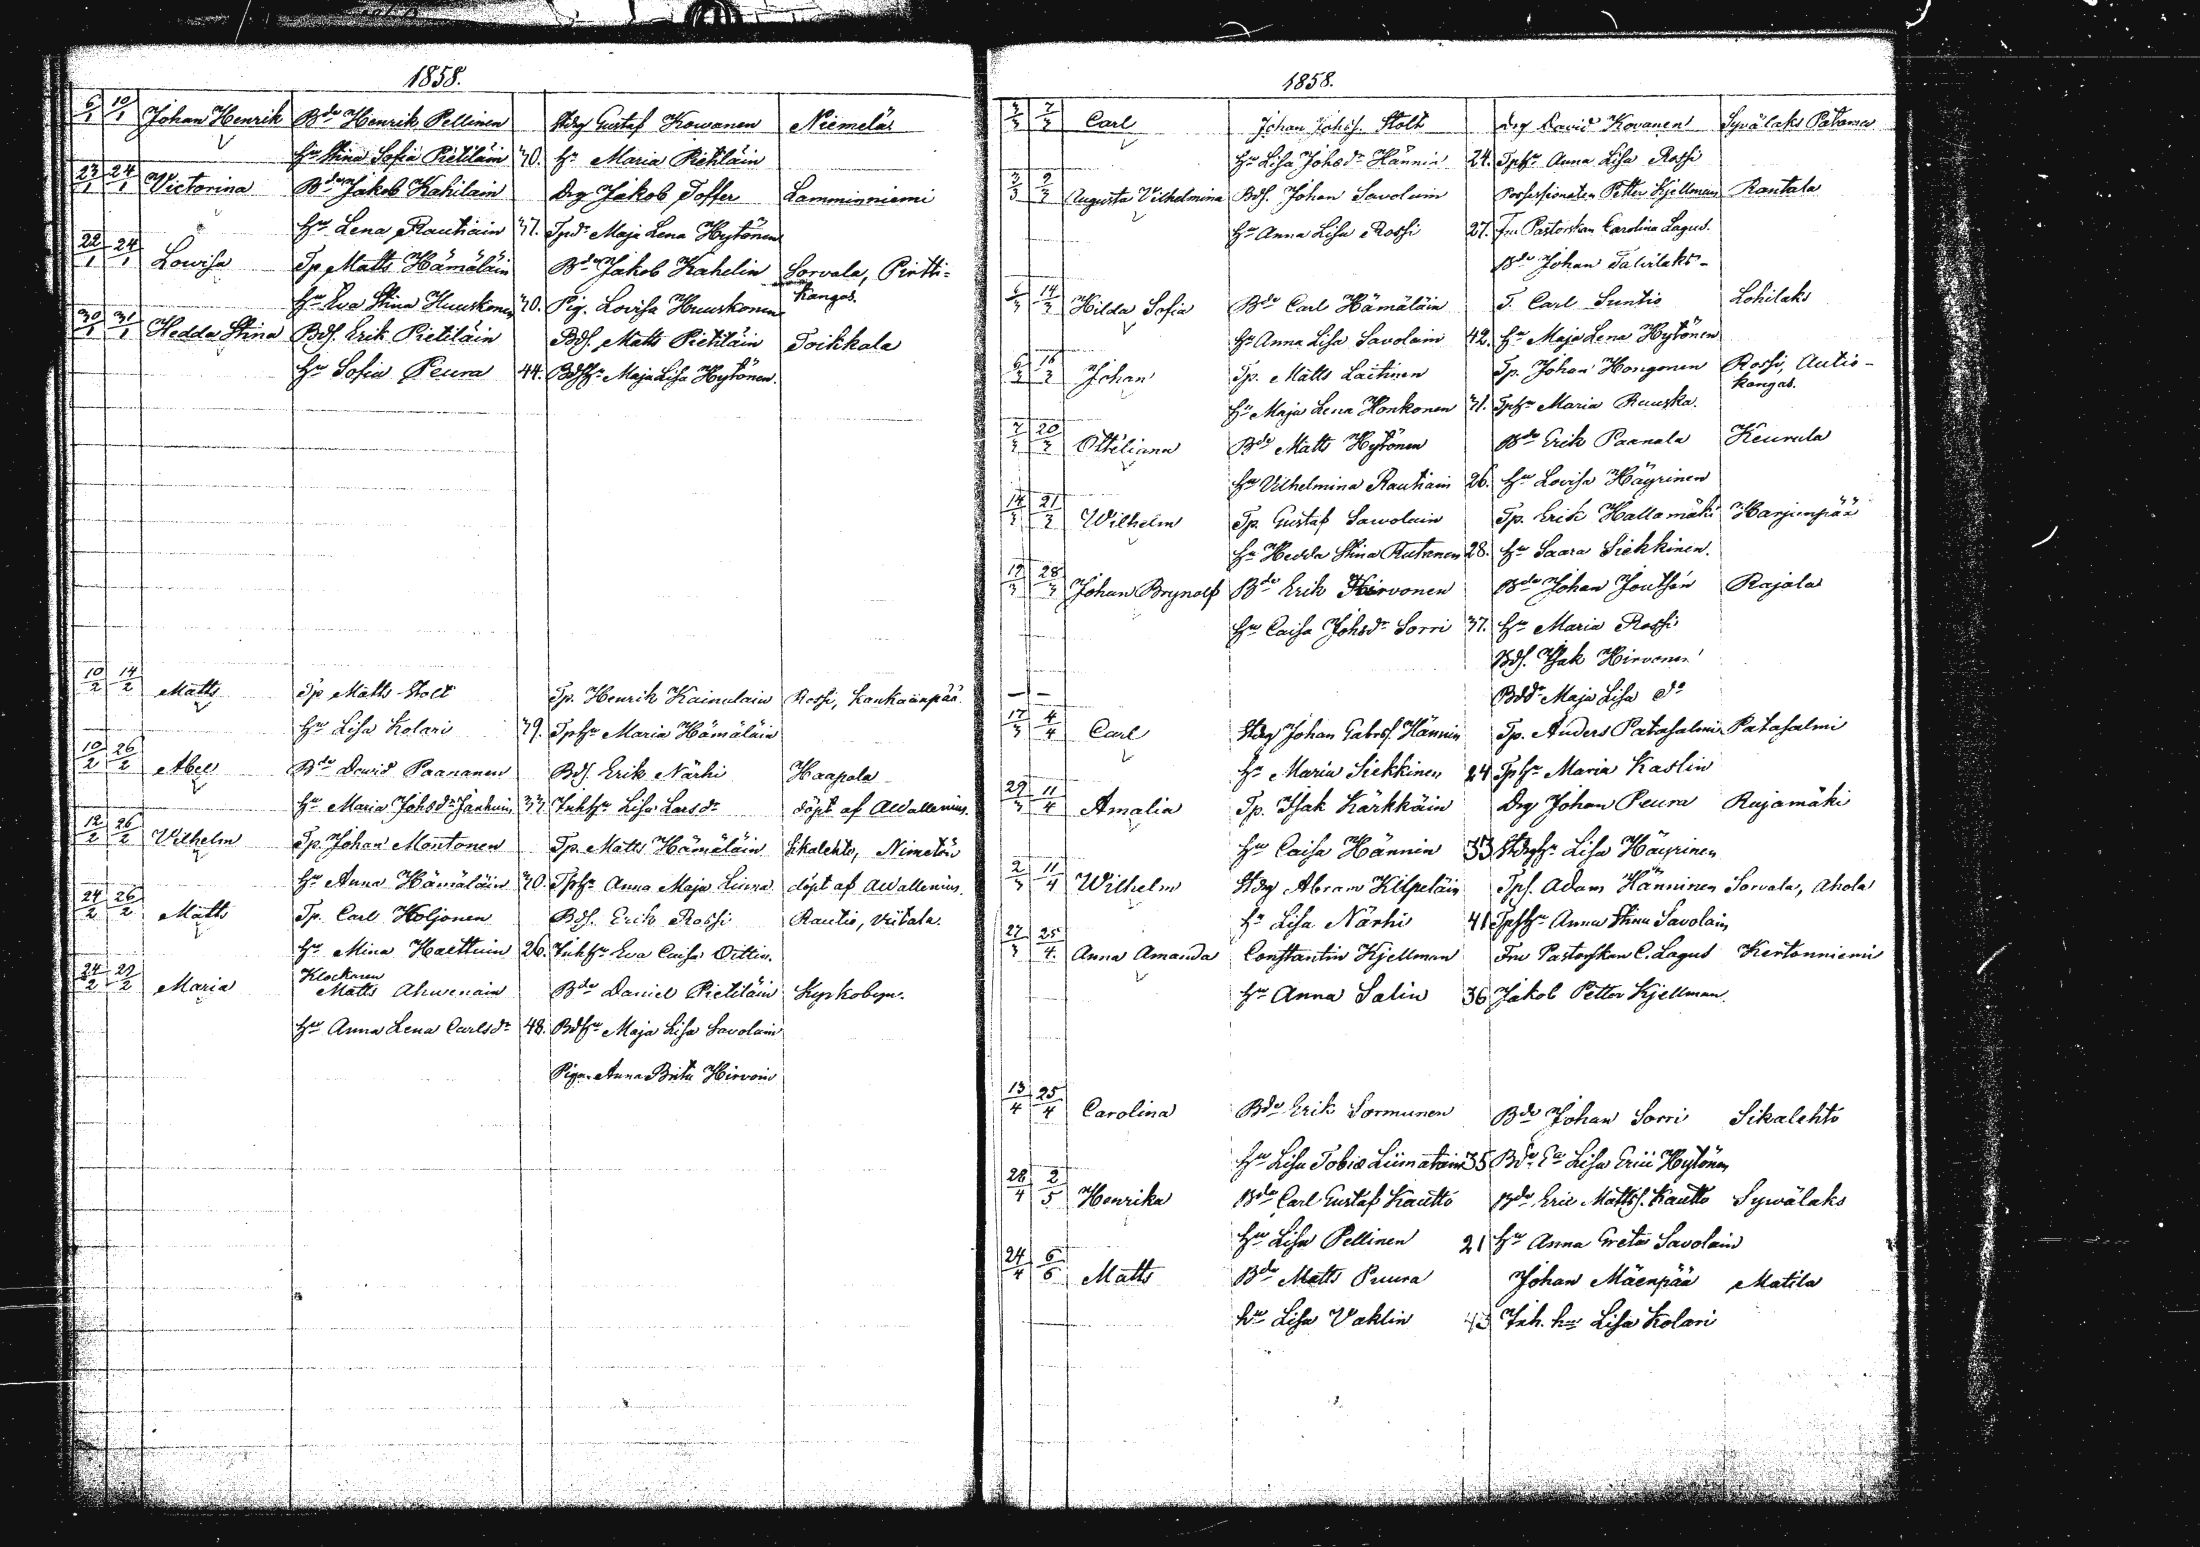 1858.
6/1 10/1 Johan Henrik Bde Henrik Pellinen Stdrg Gustaf Kowanen Niemelä
Hu Stina Sofia Pietiläin 30. Hu Maria Pietiläin
23/1 24/1 Victorina Bde Jakob Kahilain Drg Jakob Toffer Lamminniemi
Hu Lena Rautiain 37. Tpdr Maja Lena Hytönen
22/1 24/1 Lowisa Tp Matts Hämäläin Bde Jakob Kahelin Sorvala, Pirtti-
Hu Eva Stina Huuskonen 30. Pig. Lovisa Huuskonen kangas.
30/1 31/1 Hedda Stina Bds. Erik Pietiläin Bds. Matts Pietiläin Toikkala
Hu Sofia Peura 44. Bdshu Maja Lisa Hytönen.
10/2 14/2 Matts Tp Matts Stolt Tp. Henrik Kainulain Rossi, Kankaanpää
Hu Lisa Kolari 39. Tphu Maria Hämäläin
10/2 26/2 Abel Bde David Paananen Bds. Erik Närhi Haapala
Hu Maria Johsdr Jänkuin 33. Inhhu Lisa Larsdr döpt af AWallenius.
12/2 26/2 Vilhelm Tp. Johan Montonen Tp. Matts Hämäläin Sikalehto, Nimetön
Hu Anna Hämäläin 30. Tphu Anna Maja Liuna döpt af AWallenius.
24/2 26/2 Matts Tp. Carl Koljonen Bds. Erik Rossi Rautio, Viitala.
Hu Mina Haettuin 26. Inhhu Eva Caisa Oittin.
24/2 29/2 Maria Klockaren Matts Ahvenain Bde Daniel Pietiläin Kyrkobyn.
Hu Anna Lena Carlsdr 48. Bdhu Maja Lisa Savolain
Pigan Anna Brita Hirvoin
1858.
3/3 7/3 Carl Johan Johss. Stolt Drg David Kovanen Syvälaks Patama
Hu Lisa Johsdr Hännin 24. Tphu Anna Lisa Rossi
3/3 9/3 Augusta Vilhelmina Bds. Johan Savolain Possessionaten Petter Kjellman Rantala
Hu Anna Lisa Rossi 27. Fru Pastorskan Carolina Lagus.
Bde Johan Talvilaks
6/3 14/3 Hilda Sofia Bde Carl Hämäläin T. Carl Suntio Lohilaks
Hu Anna Lisa Savolain 42. Hu Maja Lena Hytönen
6/3 16/3 Johan Tp. Matts Laitinen Tp. Johan Hongonen Rossi, Autio-
Hu Maja Lena Honkonen 31. Tphu Maria Ruuska. kangas.
7/3 20/3 Ottiliana Bde Matts Hytönen Bde Erik Paanala Keurula
Hu Vilhelmina Rautiain 26. Hu Lovisa Häyrinen
14/3 21/3 Wilhelm Tp. Gustaf Sawolain Tp. Erik Hallamäki Harjunpää
Hu Hedda Stina Rutanen 28. Hu Saara Siekkinen.
19/3 28/3 Johan Brynolf Bde Erik Hirvonen Bde Johan Jouthén Rajala
Hu Caisa Johsdr Sorri 37. Hu Maria Rossi
Bds. Isak Hirvonen
Bddr Maja Lisa do
17/3 4/4 Carl Stdrg Johan Gabrss Hännin Tp. Anders Patasalmi Patasalmi
Hu Maria Siekkinen 24 Tphu Maria Kaslin
29/3 11/4 Amalia Tp. Isak Kärkkäin Drg Johan Peura Rajamäki
Hu Caisa Hännin 33 Stdrghu Lisa Häyrinen
2/3 11/4 Wilhelm Stdrg Abram Kilpeläin Tps. Adam Hänninen Sorvala, Ahola
Hu Lisa Närhi 41 Tpshu Anna Stina Savolain
27/3 25/4 Anna Amanda Constantin Kjellman Fru Pastorskan C. Lagus Kertonniemi
Hu Anna Salin 36 Jakob Petter Kjellman
13/4 25/4 Carolina Bde Erik Sormunen Bde Johan Sorri Sikalehto
Hu Lisa Tobiad Liimatain 35 Lisa Hytönen
28/4 2/5 Henrika Bde Carl Gustaf Kautto Bde Eric Mattss. Kautto Sywälaks
Hu Lisa Pellinen 21 Hu Anna Greta Savolain
24/4 6/6 Matts Bde Matts Puura Johan Mäenpää Matila
hu Lisa Vaklin 43 Inh. hu Lisa Kolari